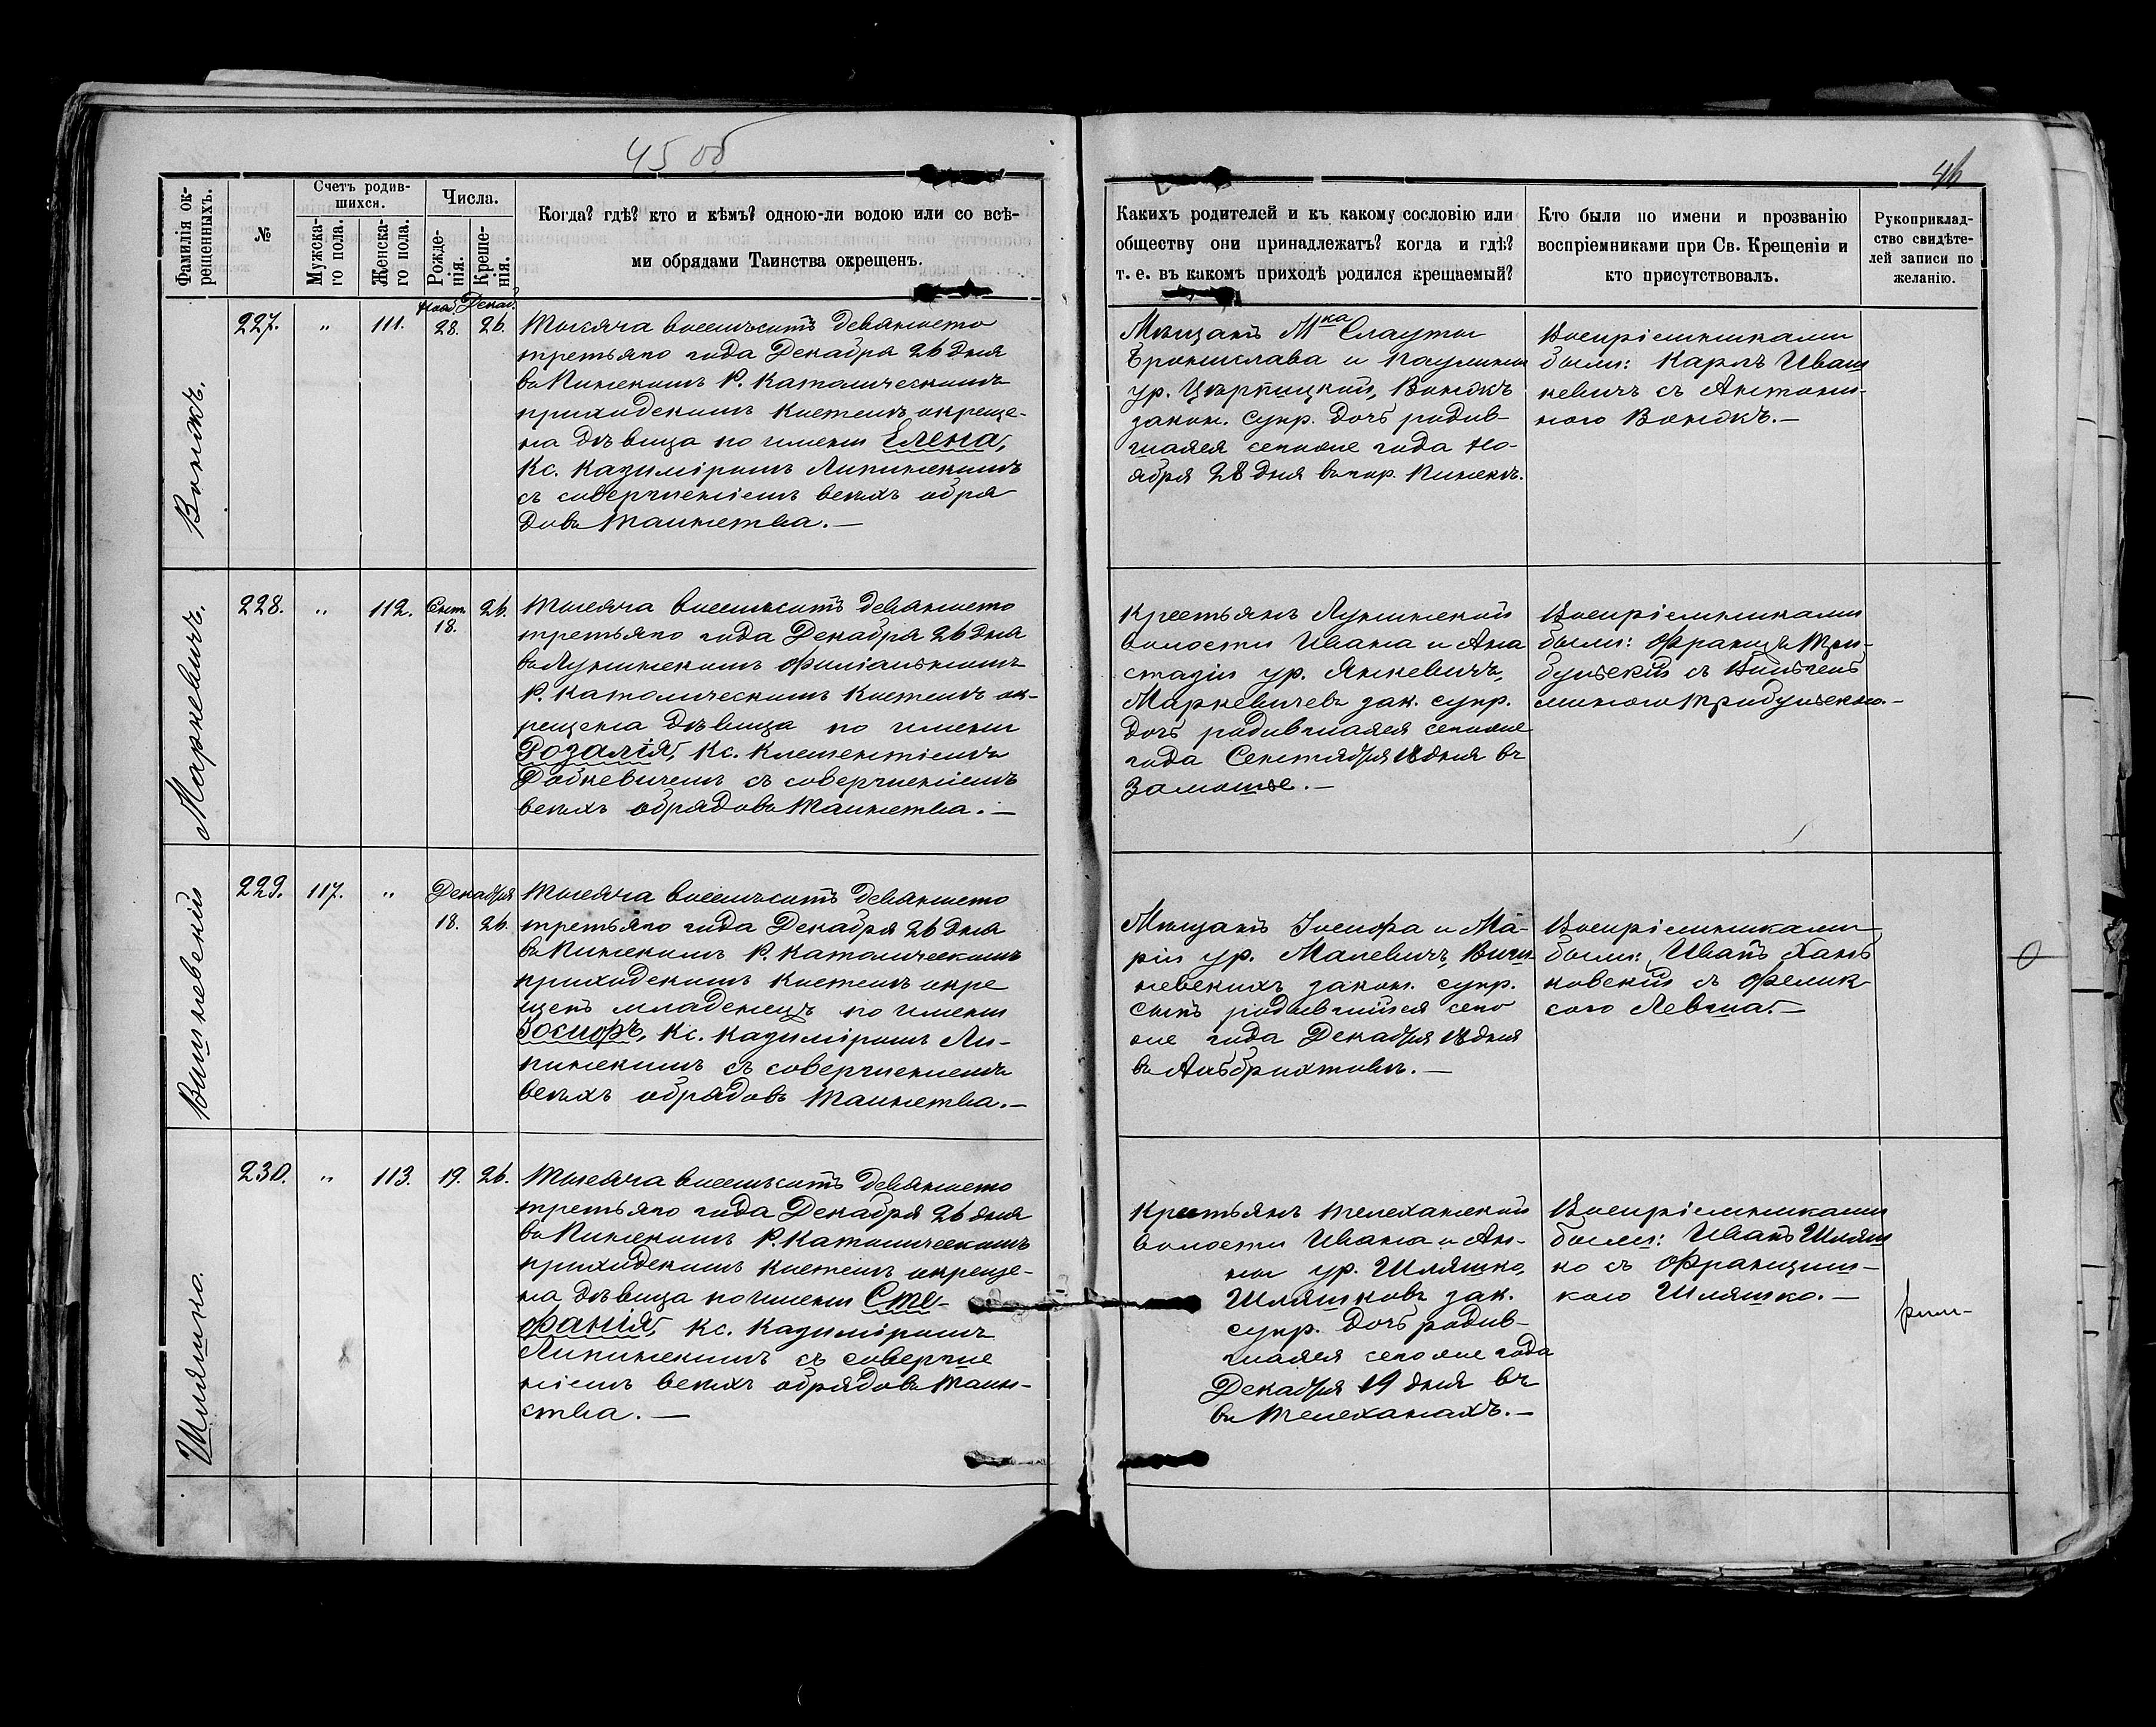 45 об
46
Фамилія ок-
рещенныхъ.
№
Счетъ родив-
шихся.
Мужска-
го пола.
Женска-
го пола.
Числа.
Рожде-
нія.
Креще-
нія.
Когда? гдѣ? кто и кѣмъ? одною-ли водою или со всѣ-
ми обрядами Таинства окрещенъ.
Какихъ родителей и къ какому сословію или
обществу они принадлежатъ? когда и гдѣ?
т. е. въ какомъ приходѣ родился крещаемый?
Кто были по имени и прозванію
воспріемниками при Св. Крещеніи и
кто присутствовалъ.
Рукоприклад-
ство свидѣте-
лей записи по
желанію.
227. „ 111.
Нояб. Декаб.
28. 26.
Тысяча восемьсотъ девяносто
третьяго года Декабря 26 дня
въ Пинскомъ Р. Католическомъ
приходскомъ костелѣ окреще-
на дѣвица по имени Елена,
Кс. Казиміромъ Липинскимъ
съ совершеніемъ всѣхъ обря
довъ Таинства.—
Мѣщанъ Мка
Бронислава и Паулины
закон. супр. дочь родив-
шаяся сего же года Но-
ября 28 дня въ пар. Пинск.
Воспріемниками
были: Карлъ Иваш
кевичъ съ Антони-
ною
Маркевичъ.
228. „ 112. Сент.
18. 26.
Тысяча восемьсотъ девяносто
третьяго года Декабря 26 дня
въ Лунинскомъ филіальномъ
Р. Католическомъ костелѣ ок-
рещена дѣвица по имени
Розалія, Кс. Клементіемъ
съ совершеніемъ
всѣхъ обрядовъ Таинства.—
Крестьянъ Лунинской
волости Ивана и Ана
стазіи ур. Янкевичъ,
Маркевичевъ зак. супр.
дочь родившаяся сего же
года Сентября 18 дня въ
Замошье.—
Воспріемниками
были: Францъ
съ
Вишневскій
229. 117. „ Декабря
18. 26.
Тысяча восемьсотъ девяносто
третьяго года Декабря 26 дня
въ Пинскомъ Р. Католическомъ
приходскомъ костелѣ окре
щенъ младенецъ по имени
Іосифъ, Кс. Казиміромъ Ли-
пинскимъ съ совершеніемъ
всѣхъ обрядовъ Таинства.—
Мѣщанъ Іосифа и Ма-
ріи ур. Малевичъ, Виш
невскихъ закон. супр.
сынъ родившійся сего
же года Декабря 18 дня
въ Альбрихтовѣ.—
Воспріемниками
были: Иванъ Хань
ковскій съ Фелик
сою
Шляшко.
230. „ 113. 19. 26.
Тысяча восемьсотъ девяносто
третьяго года Декабря 26 дня
въ Пинскомъ Р. Католическомъ
приходскомъ костелѣ окреще-
на дѣвица по имени Сте-
фанія, Кс. Казиміромъ
Липинскимъ съ соверше
ніемъ всѣхъ обрядовъ Таин-
ства.—
Крестьянъ Телеханской
волости Ивана и Ан-
ны ур. Шляшко,
Шляшковъ зак.
супр. дочь родив-
шаяся сего же года
Декабря 19 дня въ
въ Телеханахъ.—
Воспріемниками
были: Иванъ Шляш
ко съ Францишь-
кою Шляшко.—